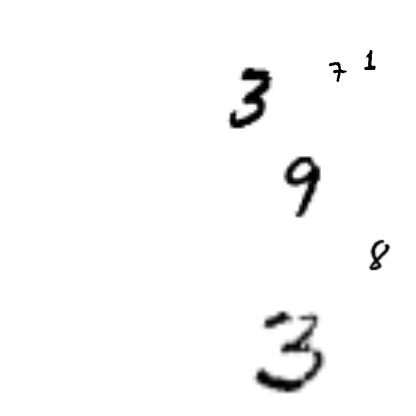 3 7 1
9
8
3